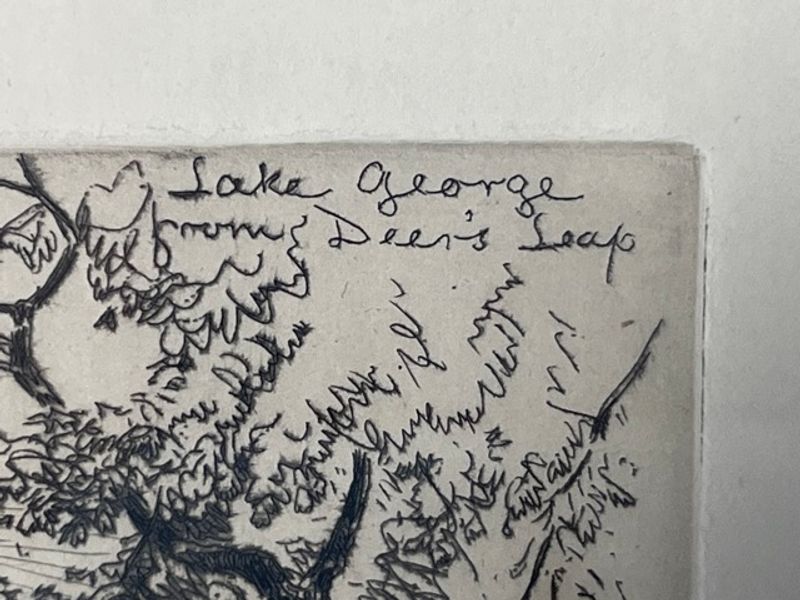 Lake George
from Deer's Leap